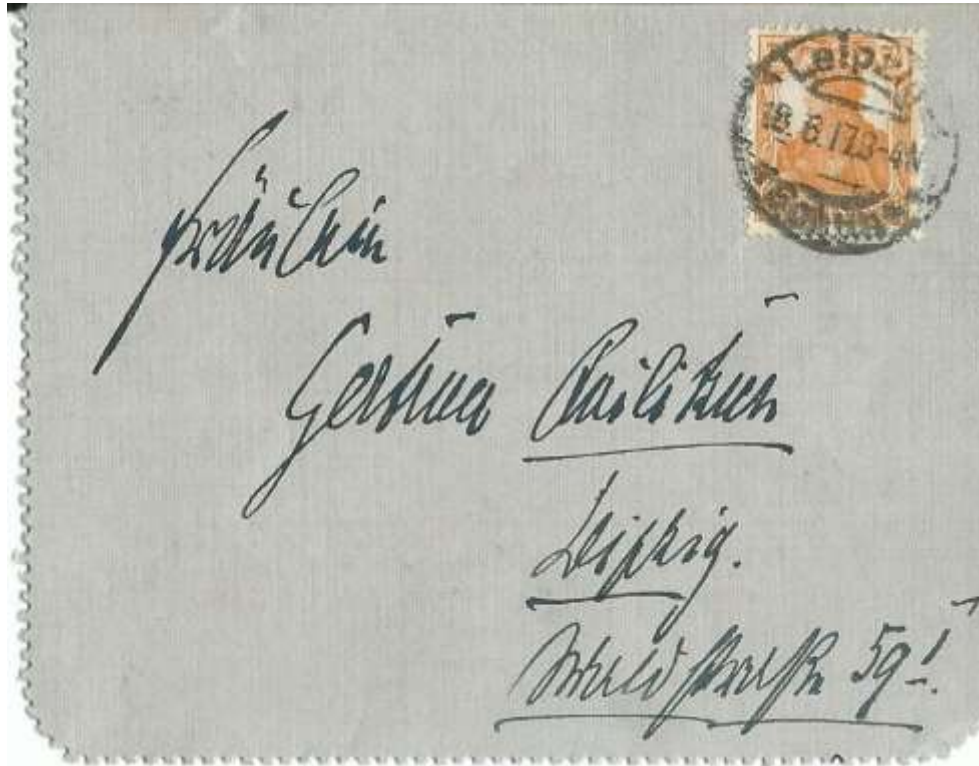 Leipzig
18.6.17.3-4N
Fräulein
Gertrud
Leipzig.
Waldstraße 59 I.